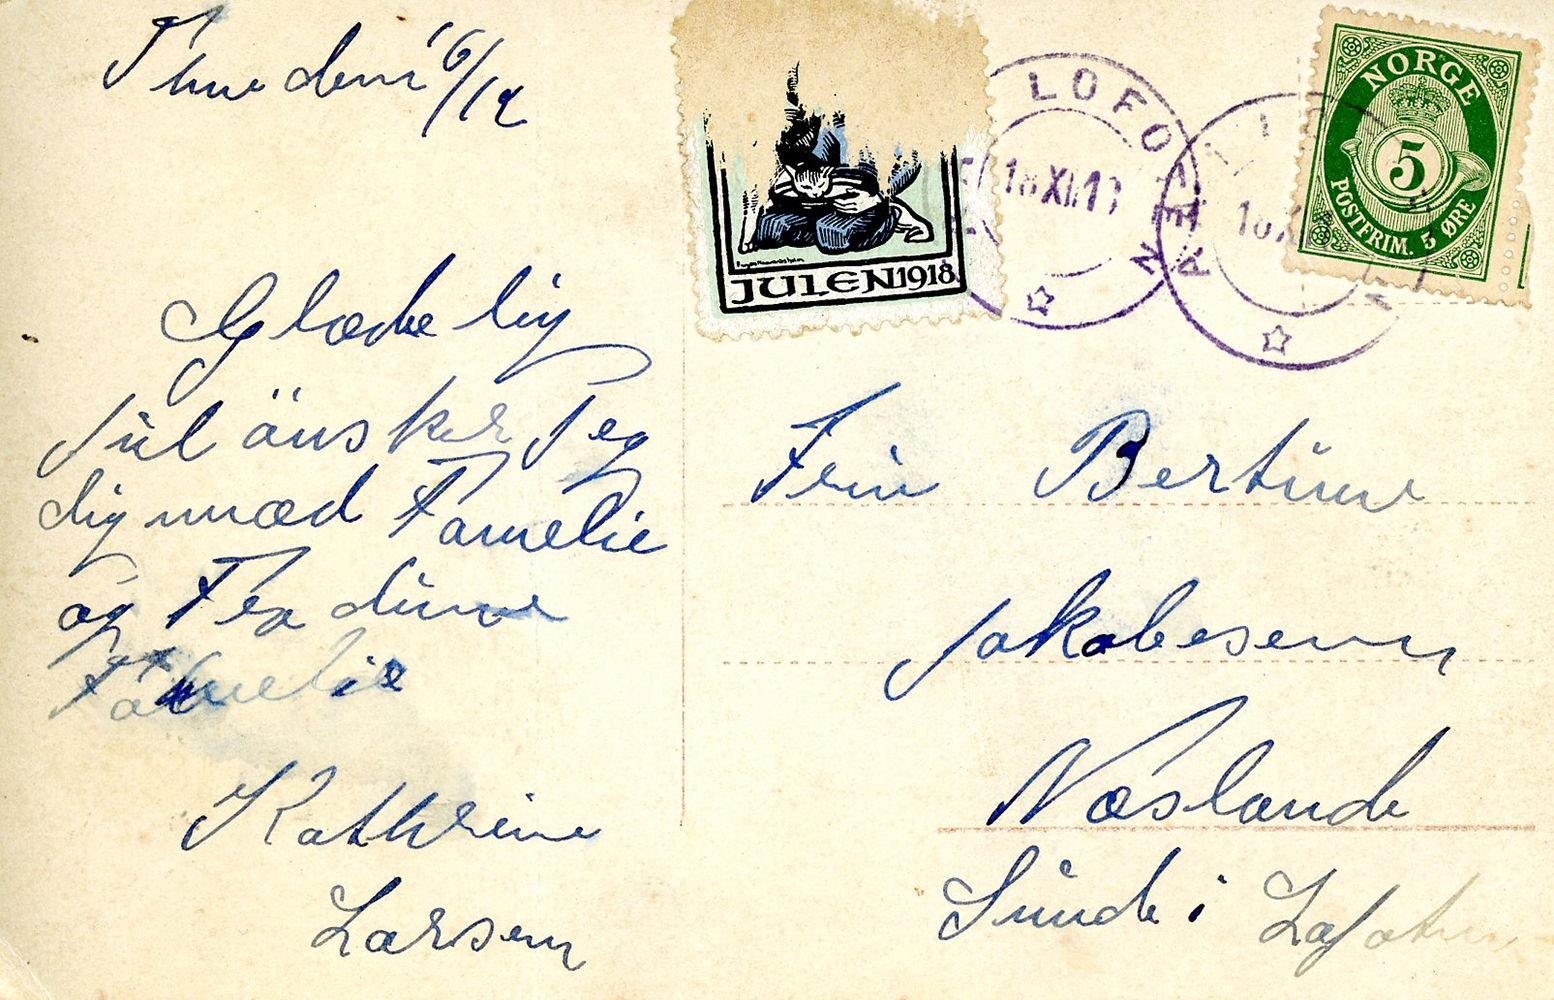 Tune den 16/12
Glædelig
Jul önsker Jeg
dig mæd Famelie
og Fra dine
Famelie
Kathrine
Larsen
JULEN 1918
LOFOTEN
18 XII 1
NORGE
5
POSTFRIM. 5 ØRE
Fru Bertine
Jakobesenn
Næslande
Sunde i Lofoten